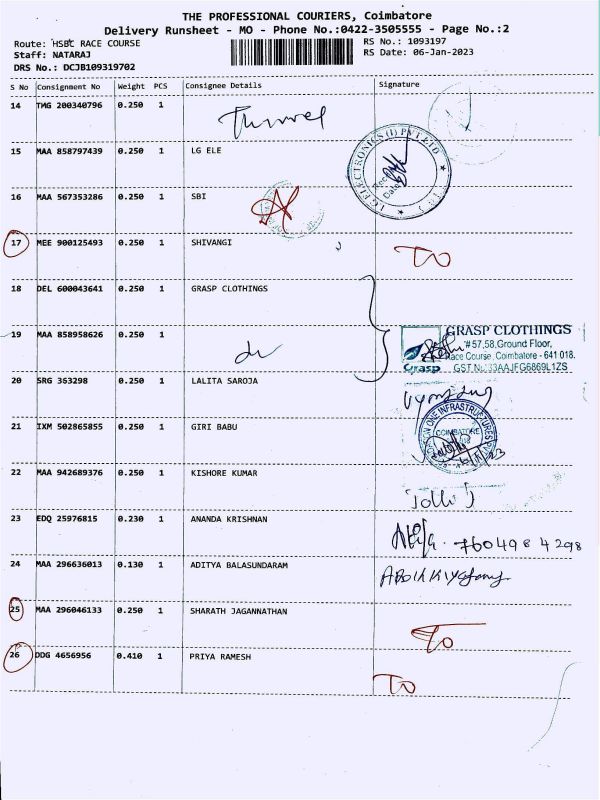 THE PROFESSIONAL COURIERS, Coimbatore
Delivery Runsheet - MO - Phone No.:0422-3505555 - Page No.:2
Route: HSBC RACE COURSE
RS No.: 1093197
Staff: NATARAJ
RS Date: 06-Jan-2023
DRS No.: DCJB109319702
S No Consignment No Weight PCS Consignee Details Signature
14 TMG 200340796 0.250 1
15 MAA 858797439 0.250 1 LG ELE
LG ELECTRONICS (I) PVT LTD
16 MAA 567353286 0.250 1 SBI
17 MEE 900125493 0.250 1 SHIVANGI TO
18 DEL 600043641 0.250 1 GRASP CLOTHINGS
19 MAA 858958626 0.250 1 do
GRASP CLOTHINGS
#57,58,Ground Floor,
Race Course, Coimbatore - 641 018.
Grasp GST No:33AAJFG6869L1ZS
20 SRG 363298 0.250 1 LALITA SAROJA
21 IXM 502865855 0.250 1 GIRI BABU
ONE INFRASTRUCTURES
COIMBATORE
22 MAA 942689376 0.250 1 KISHORE KUMAR
23 EDQ 25976815 0.230 1 ANANDA KRISHNAN 7604984298
24 MAA 296636013 0.130 1 ADITYA BALASUNDARAM
25 MAA 296046133 0.250 1 SHARATH JAGANNATHAN TO
26 DDG 4656956 0.410 1 PRIYA RAMESH TO